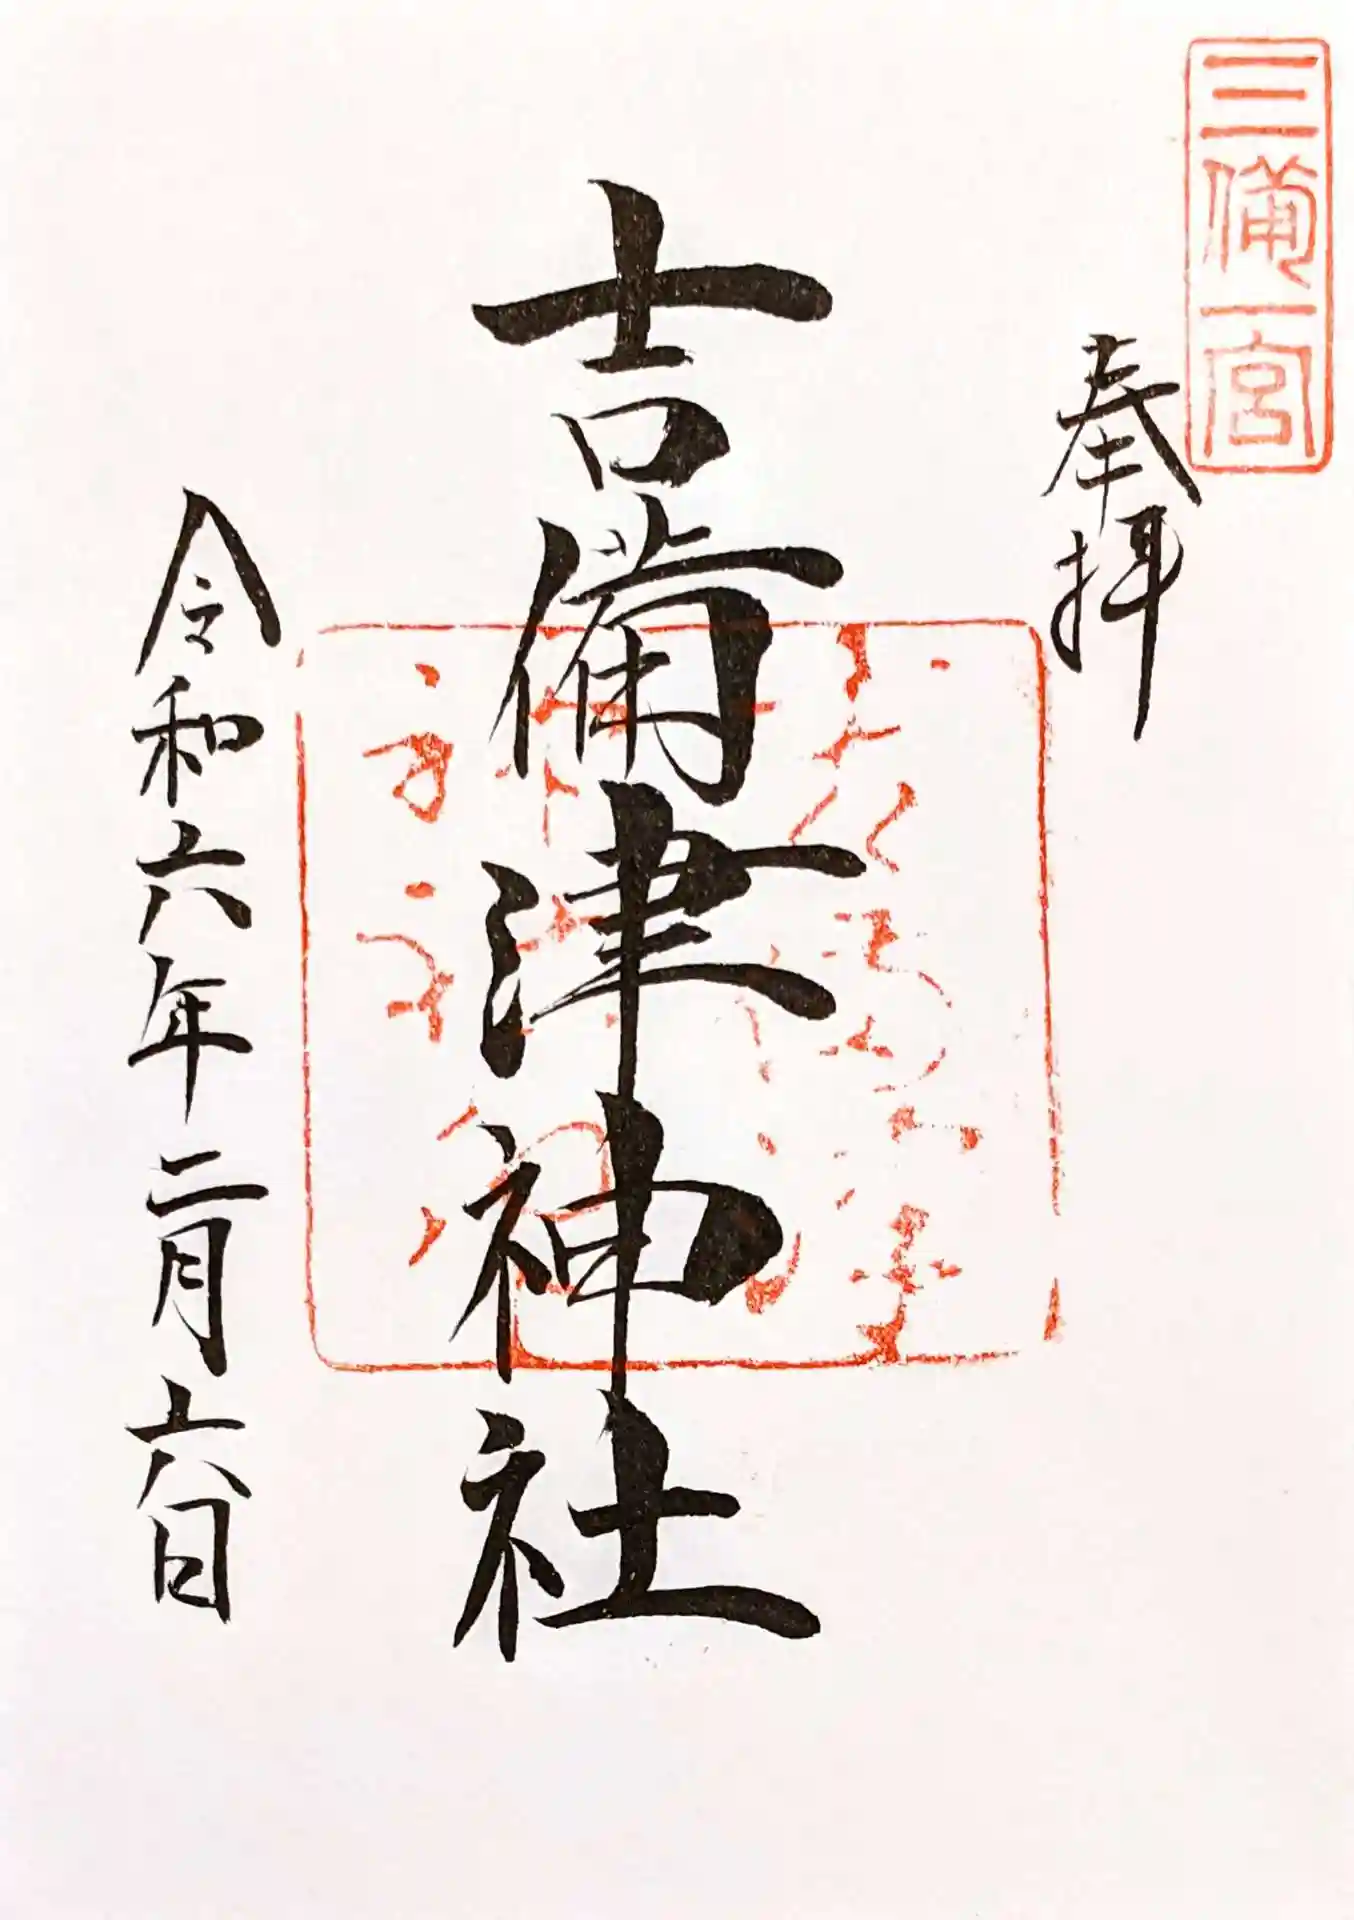 三備一宮
奉拝
吉備津神社
令和六年二月六日